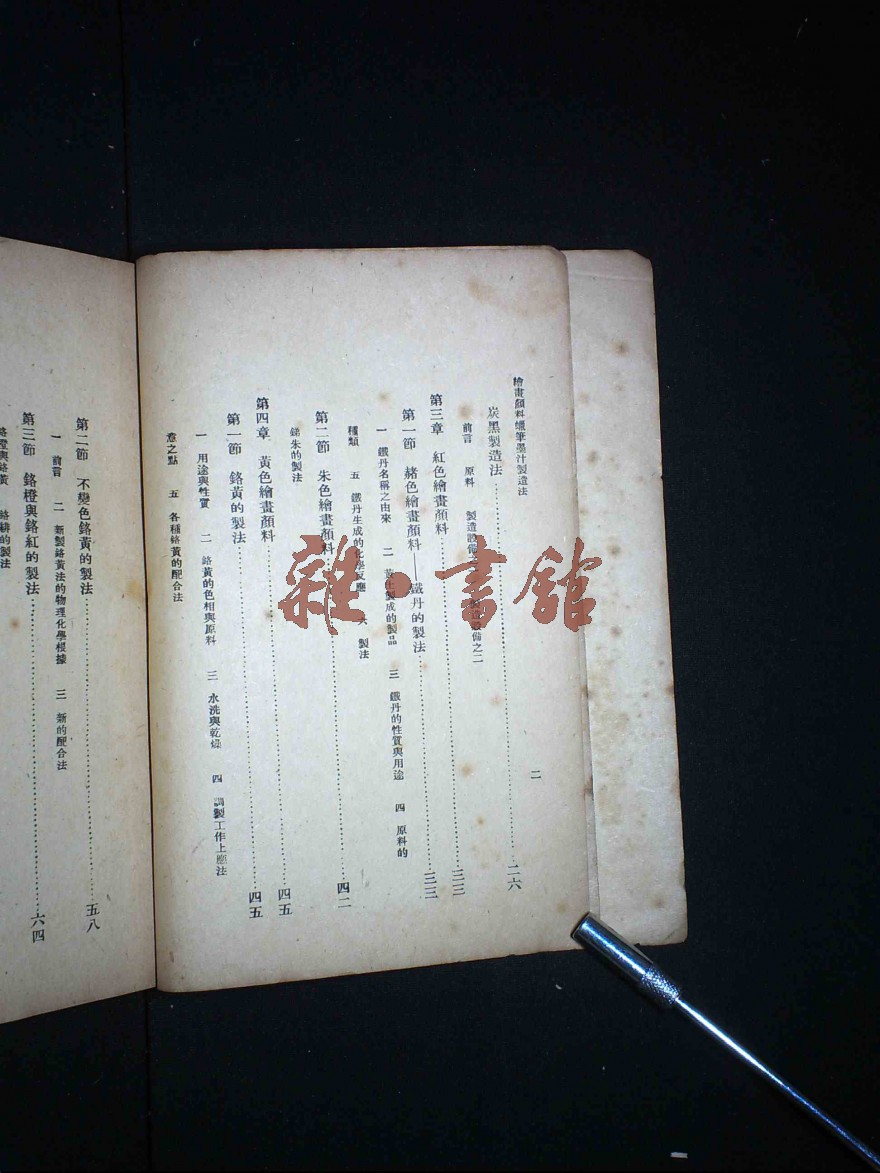 繪畫顏料蠟筆墨汁製造法
二
炭黑製造法……二六
前言 原料 製造設備之一 製造設備之二
第三章 紅色繪畫顏料……三三
第一節 赭色繪畫顏料——鐵丹的製法……三三
一 鐵丹名稱之由來 二 黃土製成的製品 三 鐵丹的性質與用途 四 原料的
種類 五 鐵丹生成的化學反應 六 製法
第二節 朱色繪畫顏料……四二
銻朱的製法
第四章 黃色繪畫顏料……四五
第一節 鉻黃的製法……四五
一 用途與性質 二 鉻黃的色相與原料 三 水洗與乾燥 四 調製工作上應注
意之點 五 各種鉻黃的配合法
第二節 不變色鉻黃的製法……五八
一 前言 二 新製鉻黃法的物理化學根據 三 新的配合法
第三節 鉻橙與鉻紅的製法……六四
鉻橙與鉻黃 鉻緋的製法
雜·書館